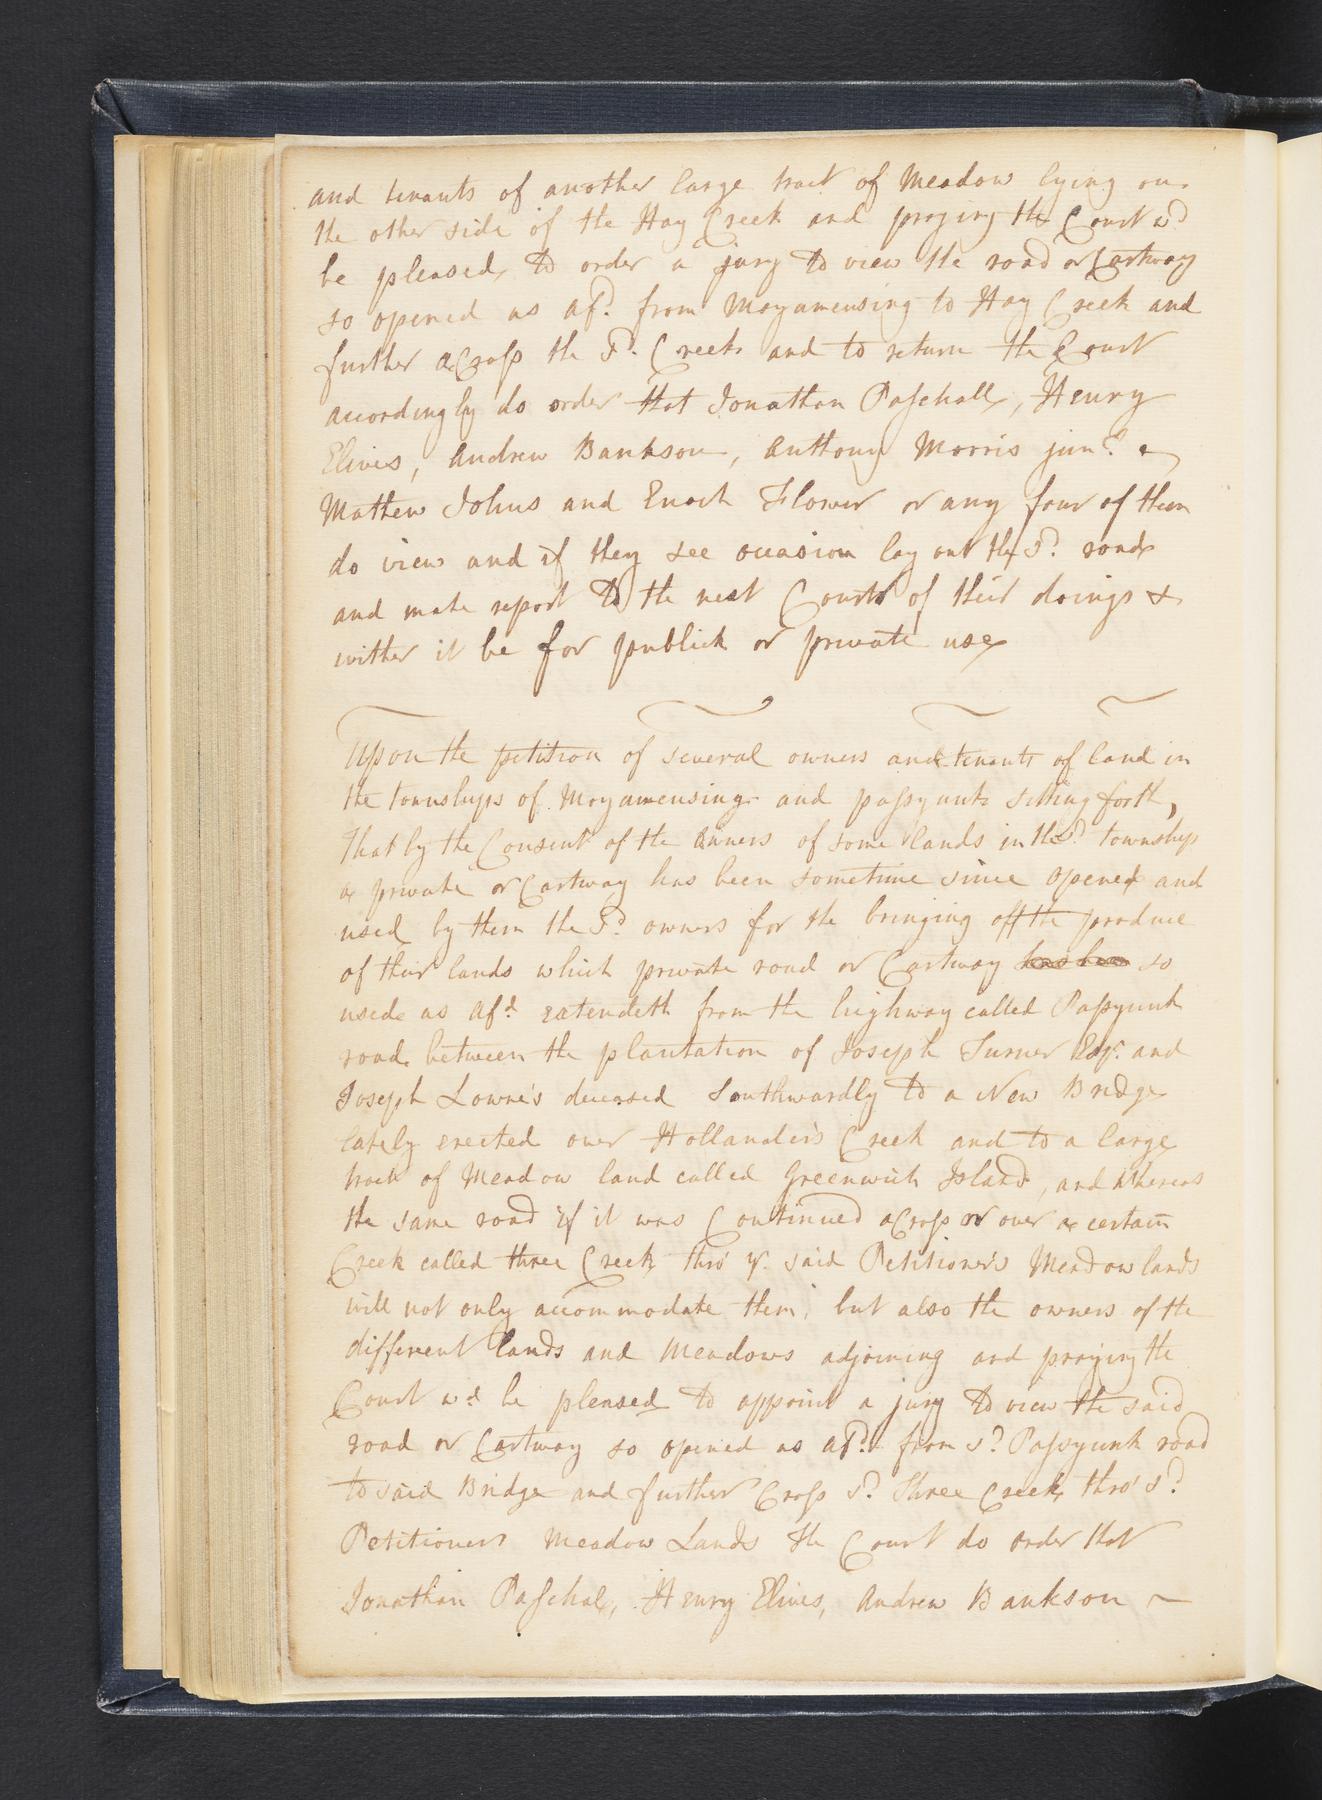 and tenants of another large tract of Meadow lying on
the other side of the Hay Creek and praying the Court wd
be pleased to order a jury to view the road or Cartway
so opened as afd. from Moyamensing to Hay Creek and
further aCross the Sd. Creek and to return the Court
accordingly do order that Jonathan Paschall, Henry
Elives, Andrew Bankson, Anthony Morris junr.
Mathew Johns and Enoch Flower or any four of them
do view and if they see occasion lay out the Sd. road
and make report to the next Court of their doings &
wither it be for publick or private use
Upon the petition of several owners and tenants of land in
the townships of Moyamensing and passyunk setting forth,
That by the Consent of the owners of some lands in the sd township
a private or Cartway has been sometime since opened and
used by them the Sd. owners for the bringing off the produce
of their lands which private road or Cartway has been so
used as afd. extendeth from the highway called Passyunk
road between the plantation of Joseph Turner Esqr. and
Joseph Lowne's deceased Southwardly to a New Bridge
lately erected over Hollander's Creek and to a large
track of Meadow land called Greenwich Island, and Whereas
the same road if it was Continued aCross or over a certain
Creek called three Creek thro' ye. said Petitioner's Meadow lands
will not only accommodate them, but also the owners of the
different lands and Meadows adjoining and praying the
Court wd. be pleased to appoint a jury to view the said
road or Cartway so opened as afd. from sd. Passyunk road
to said Bridge and further Cross sd. Three Creek thro' sd.
Petitioners Meadow Lands the Court do order that
Jonathan Paschal, Henry Elives, Andrew Bankson